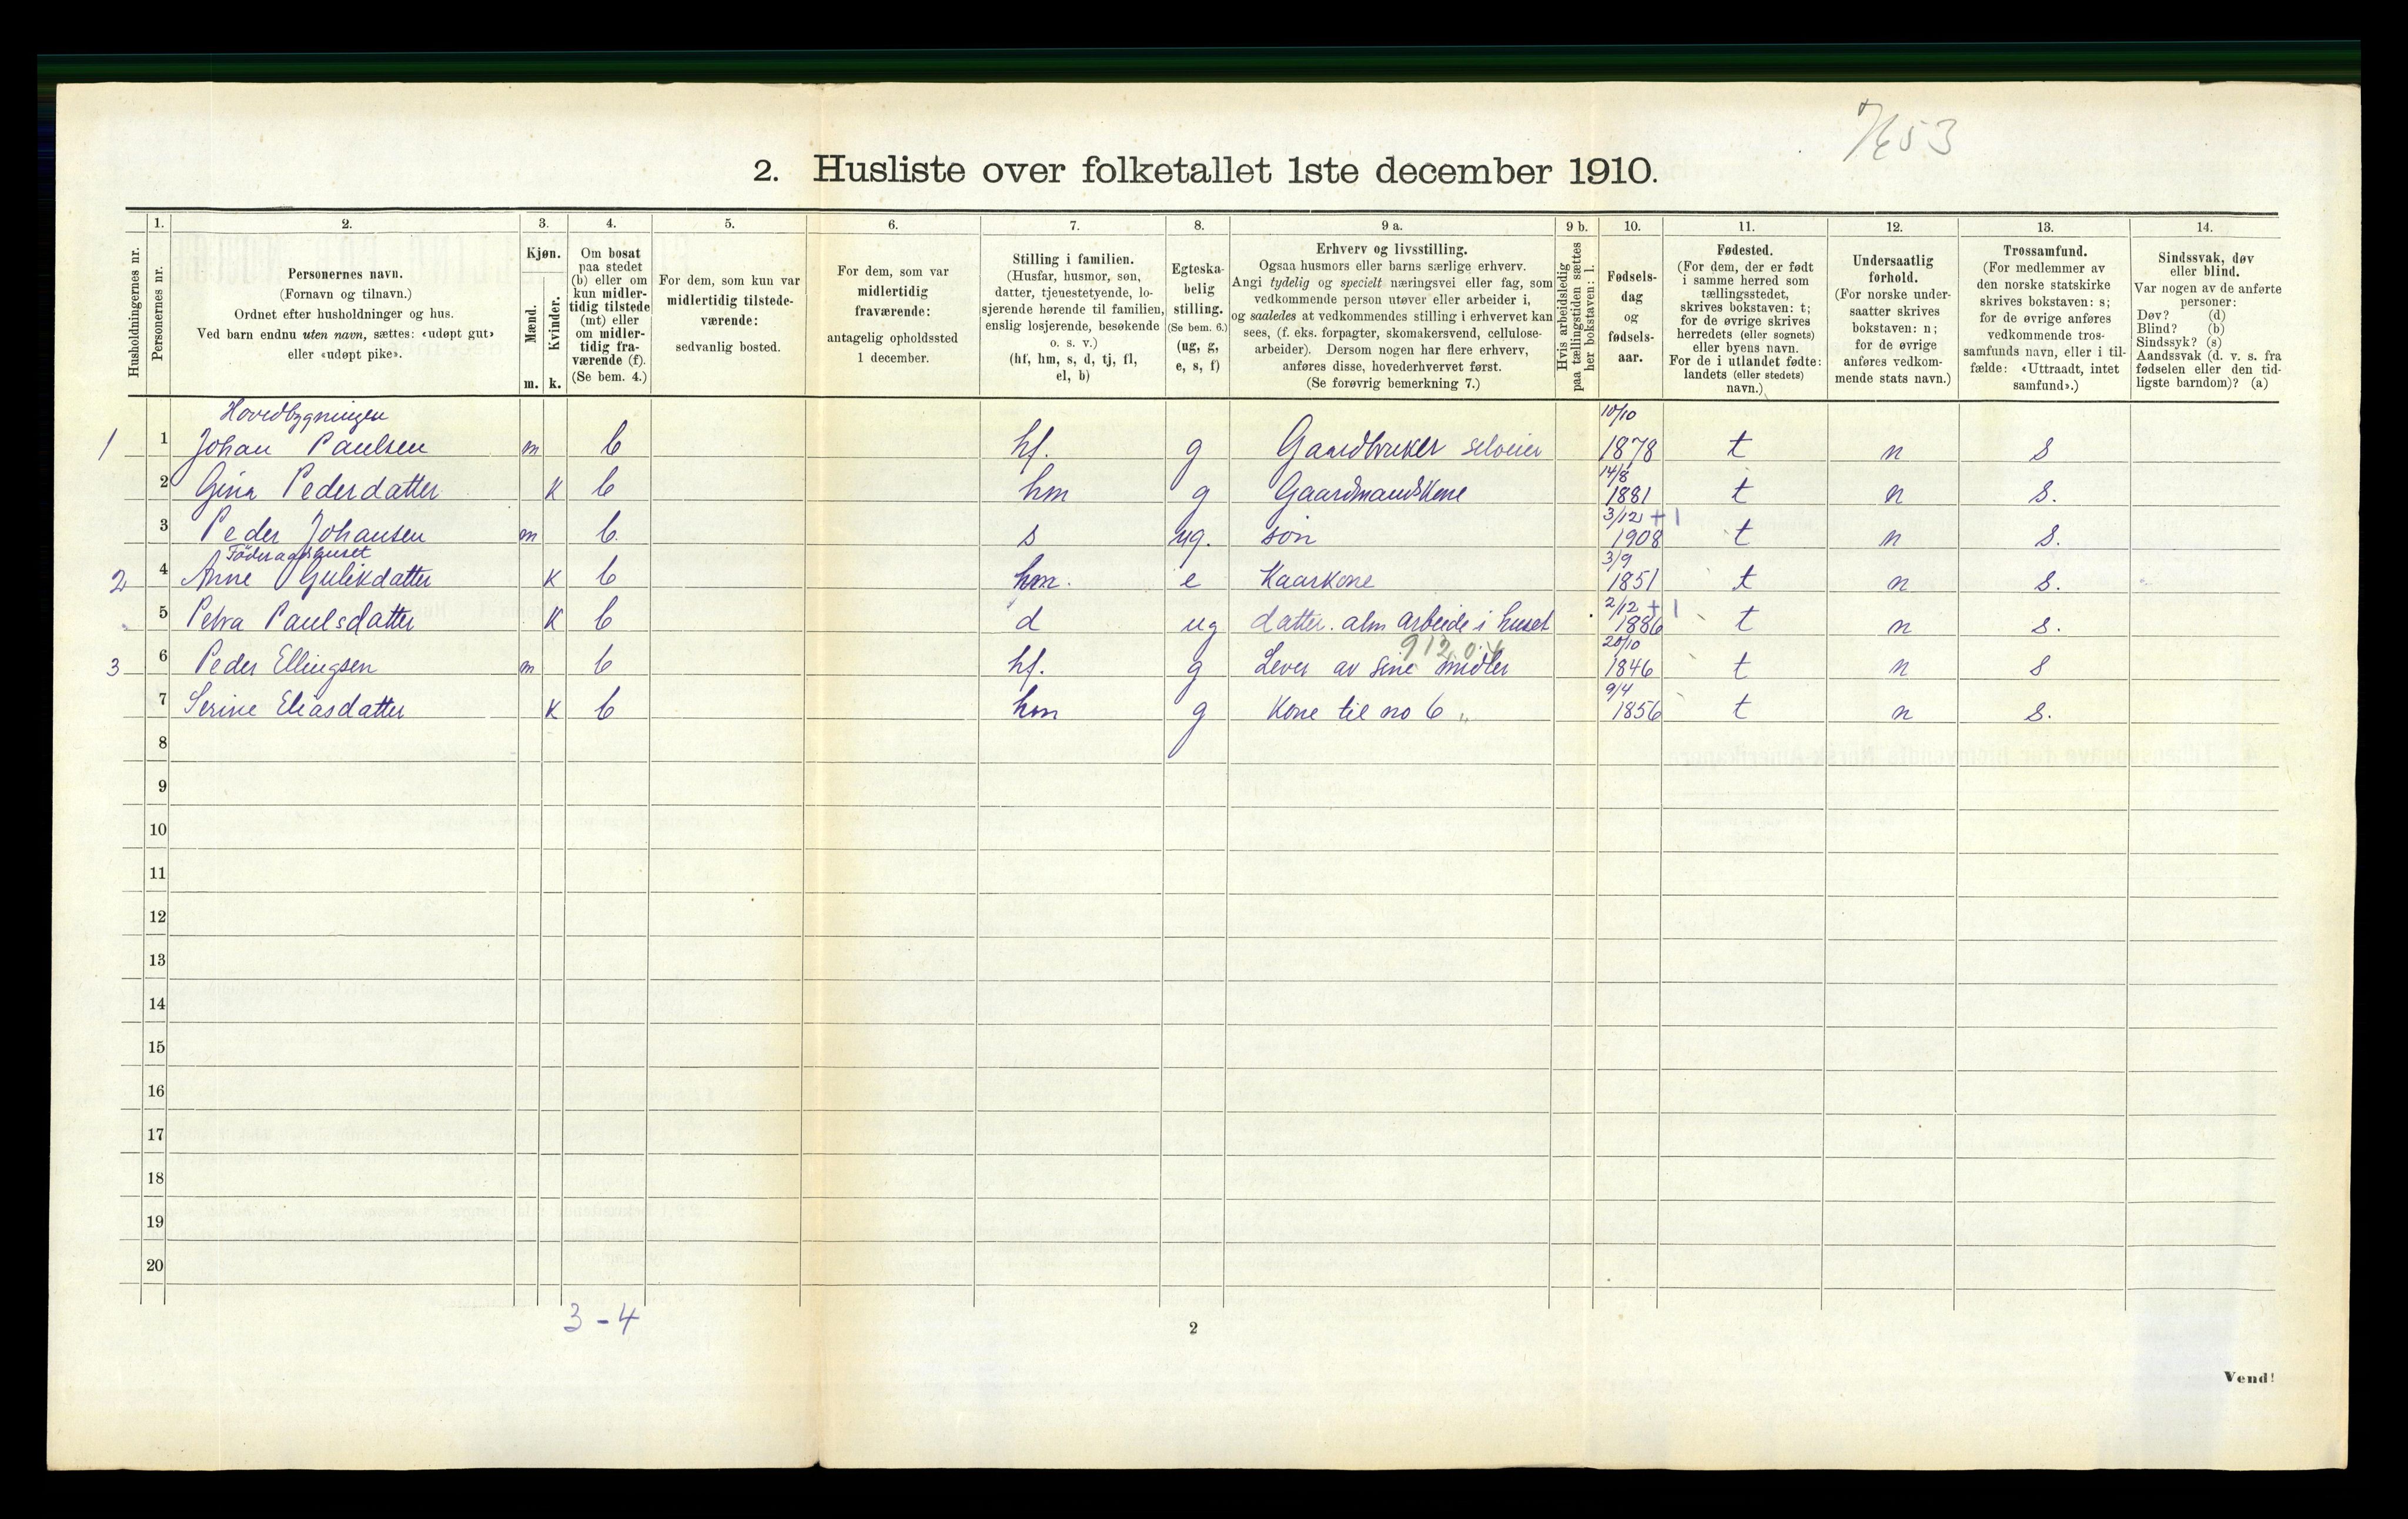 2. Husliste over folketallet 1ste december 1910.
Husholdningernes nr.
1.
Personernes nr.
2.
Personernes navn.
(Fornavn og tilnavn.)
Ordnet efter husholdninger og hus.
Ved barn endnu uten navn, sættes: «udøpt gut»
eller «udøpt pike».
3.
Kjøn.
Mænd.
Kvinder.
m. k.
4.
Om bosat
paa stedet
(b) eller om
kun midler-
tidig tilstede
(mt) eller
om midler-
tidig fra-
værende (f).
(Se bem. 4.)
5.
For dem, som kun var
midlertidig tilstede-
værende:
sedvanlig bosted.
6.
For dem, som var
midlertidig
fraværende:
antagelig opholdssted
1 december.
7.
Stilling i familien.
(Husfar, husmor, søn,
datter, tjenestetyende, lo-
sjerende hørende til familien,
enslig losjerende, besøkende
o. s. v.)
(hf, hm, s, d, tj, fl,
el, b)
8.
Egteska-
belig
stilling.
(Se bem. 6.)
(ug, g,
e, s, f)
9 a.
Erhverv og livsstilling.
Ogsaa husmors eller barns særlige erhverv.
Angi tydelig og specielt næringsvei eller fag, som
vedkommende person utøver eller arbeider i,
og saaledes at vedkommendes stilling i erhvervet kan
sees, (f. eks. forpagter, skomakersvend, cellulose-
arbeider). Dersom nogen har flere erhverv,
anføres disse, hovederhvervet først.
(Se forøvrig bemerkning 7.)
9 b.
Hvis arbeidsledig
paa tællingstiden sættes
her bokstaven: l.
10.
Fødsels-
dag
og
fødsels-
aar.
11.
Fødested.
(For dem, der er født
i samme herred som
tællingsstedet,
skrives bokstaven: t;
for de øvrige skrives
herredets (eller sognets)
eller byens navn.
For de i utlandet fødte:
landets (eller stedets)
navn.)
12.
Undersaatlig
forhold.
(For norske under-
saatter skrives
bokstaven: n;
for de øvrige
anføres vedkom-
mende stats navn.)
13.
Trossamfund.
(For medlemmer av
den norske statskirke
skrives bokstaven: s;
for de øvrige anføres
vedkommende tros-
samfunds navn, eller i til-
fælde: «Uttraadt, intet
samfund».)
14.
Sindssvak, døv
eller blind.
Var nogen av de anførte
personer:
Døv? (d)
Blind? (b)
Sindssyk? (s)
Aandssvak (d. v. s. fra
fødselen eller den tid-
ligste barndom)? (a)
Hovedbygningen 10/10
1 1 Johan Paulsen m b hf. g Gaardbruker selveier 1878 t n s
14/8
2 Gina Pedersdatter k b hm g Gaardmandskone 1881 t n s.
3/12 + 1
3 Peder Johansen m b. s ug. søn 1908 t n s.
Føderaadshuset 3/9
2 4 Anne Gulikdatter k b hm. e Kaarkone 1851 t n s.
2/12 + 1
5 Petra Paulsdatter k b d ug datter. alm arbeide i huset 1886 t n s.
20/10
3 6 Peder Ellingsen m b hf. g Lever av sine midler 1846 t n s
9/4
7 Serine Eliasdatter k b hm g Kone til no 6 1856 t n s.
8
9
10
11
12
13
14
15
16
17
18
19
20
3 - 4
2
Vend!